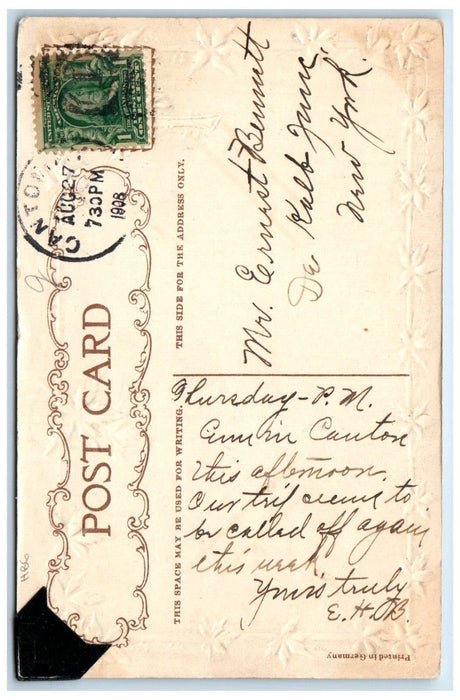 CANTON
AUG 27
7 30 PM
1908
POST CARD
THIS SIDE FOR THE ADDRESS ONLY.
Mr. Ernest Bennett
De Kalb Junc,
New York.
THIS SPACE MAY BE USED FOR WRITING.
Thursday - P.M.
am in Canton
this afternoon.
Our trip seems to
be called off again
this week.
Yours truly
E.H.B.
Printed in Germany
H86